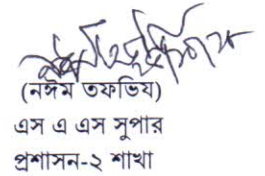 (নঈম তফভিয)
এস এ এস সুপার
প্রশাসন-২ শাখা